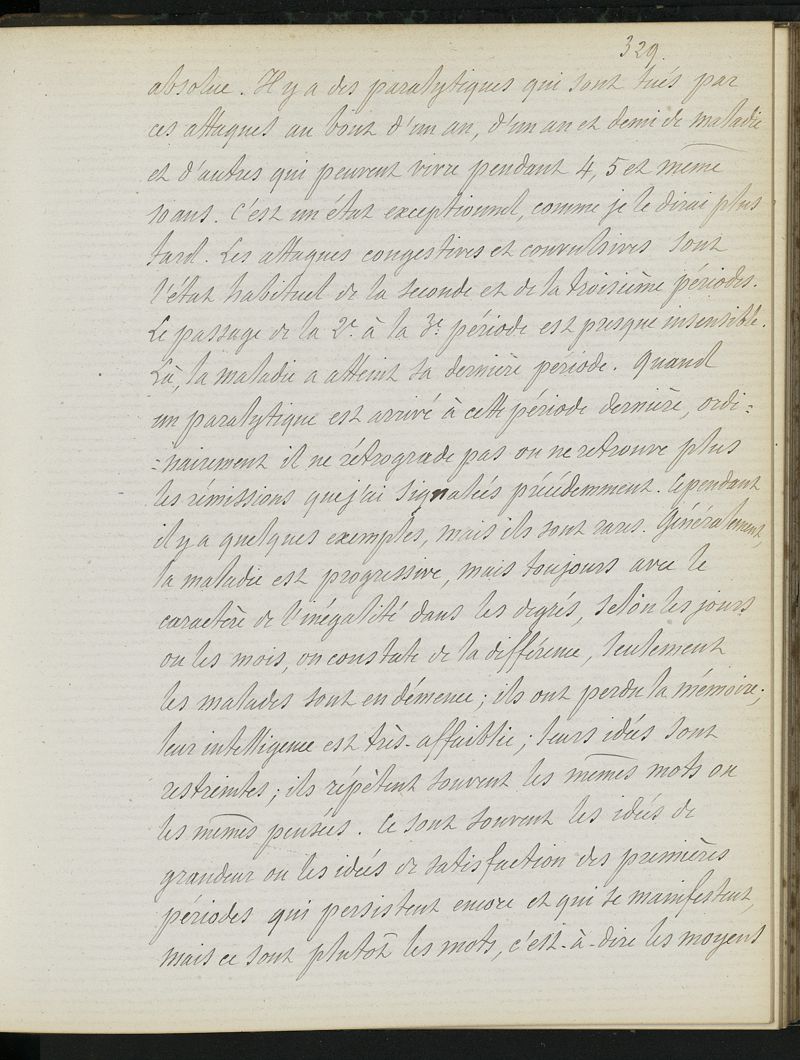 329.
absolue. Il y a des paralytiques qui sont tués par
ces attaques au bout d'un an, d'un an et demi de maladie
et d'autres qui peuvent vivre pendant 4, 5 et même
10 ans. C'est un état exceptionnel, comme je le dirai plus
tard. Les attaques congestives et convulsives sont
l'état habituel de la seconde et de la troisième périodes.
Le passage de la 2e. à la 3e. période est presque insensible.
Là, la maladie a atteint sa dernière période. Quand
un paralytique est arrivé à cette période dernière, ordi=
=nairement il ne rétrograde pas on ne retrouve plus
les rémissions que j'ai signalées précédemment. Cependant
il y a quelques exemples, mais ils sont rares. Généralement,
la maladie est progressive, mais toujours avec le
caractère de l'inégalité dans les degrés, selon les jours
ou les mois, on constate de la différence, seulement
les malades sont en démence; ils ont perdu la mémoire;
leur intelligence est très-affaiblie; leurs idées sont
restreintes; ils répètent souvent les mêmes mots ou
les mêmes pensées. Ce sont souvent les idées de
grandeur ou les idées de satisfaction des premières
périodes qui persistent encore et qui se manifestent,
mais ce sont plutôt les mots, c'est-à-dire les moyens